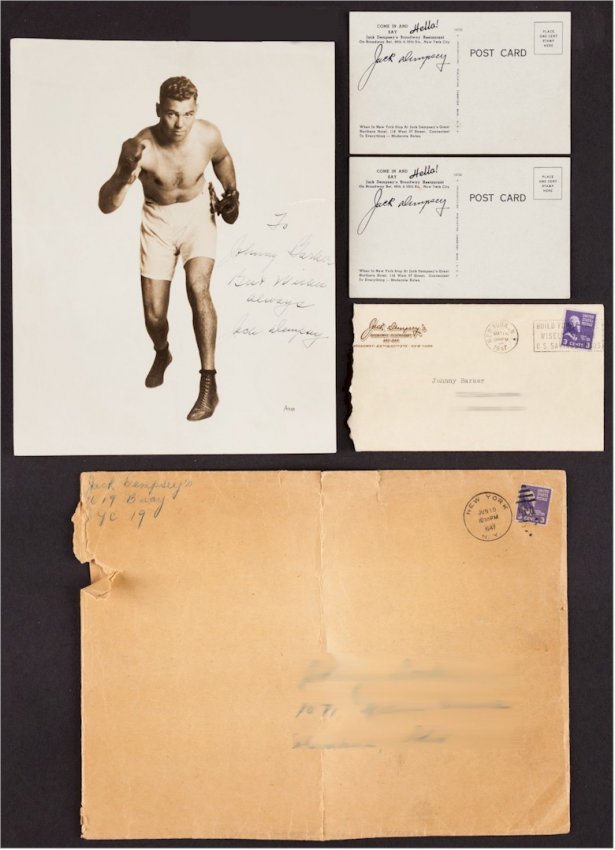 To
Johnny Barker
Best Wishes
always
Jack Dempsey
COME IN AND
SAY Hello!
Jack Dempsey's Broadway Restaurant
On Broadway Bet. 49th & 50th Sts., New York City
Jack Dempsey
When In New York Stop At Jack Dempsey's Great
Northern Hotel, 118 West 57 Street. Convenient
To Everything — Moderate Rates
POST CARD
PLACE
ONE CENT
STAMP
HERE
COME IN AND
SAY Hello!
Jack Dempsey's Broadway Restaurant
On Broadway Bet. 49th & 50th Sts., New York City
Jack Dempsey
When In New York Stop At Jack Dempsey's Great
Northern Hotel, 118 West 57 Street. Convenient
To Everything — Moderate Rates
POST CARD
PLACE
ONE CENT
STAMP
HERE
Jack Dempsey's
NEW YORK, N.Y.
1947
BUILD
U.S. SA
3 CENTS 3
Johnny Barker
Jack Dempsey's
1619 B'way
NYC 19
NEW YORK
JUN 10
1947
N.Y.
3 CENTS 3